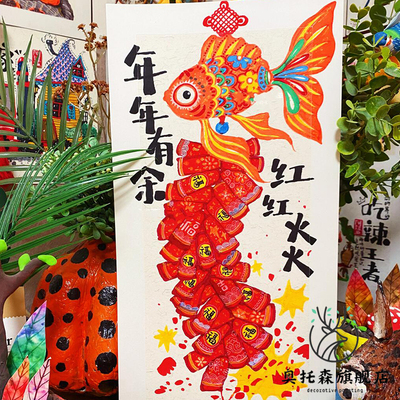 年年有余
红红火火
福
福
福
福
福
吃辣王者
奥托森旗舰店
decorative painting